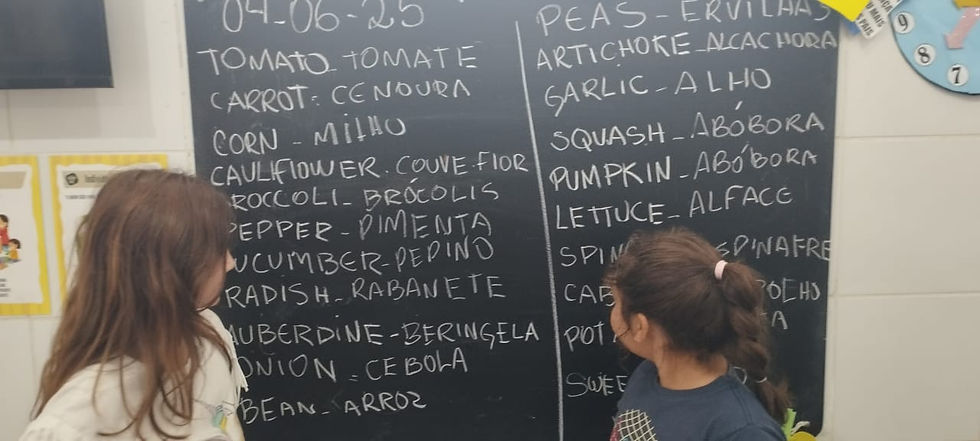 04-06-25
TOMATO - TOMATE
CARROT - CENOURA
CORN - MILHO
CAULIFLOWER - COUVE-FLOR
ROCCOLI - BRÓCOLIS
PEPPER - PIMENTA
UCUMBER - PEPINO
RADISH - RABANETE
AUBERDINE - BERINGELA
ONION - CEBOLA
BEAN - ARROZ
PEAS - ERVILHAS
ARTICHOKE - ALCACHORA
GARLIC - ALHO
SQUASH - ABÓBORA
PUMPKIN - ABÓBORA
LETTUCE - ALFACE
SPIN SPINAFRE
CAB OLHO
POT A
SWEE
9
8
7